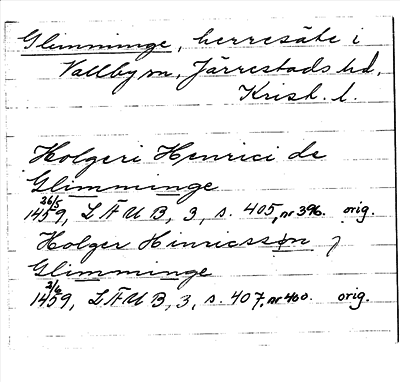 Glimminge, herresäte i
Vallby sn, Järrestads hd,
Krist. l.
Holgeri Henrici de
Glimminge
26/5 1459, LÄUB, 3, s. 405, nr 396. orig.
Holger Hinricssøn i
Glimminge
2/6 1459, LÄUB, 3, s. 407, nr 400. orig.